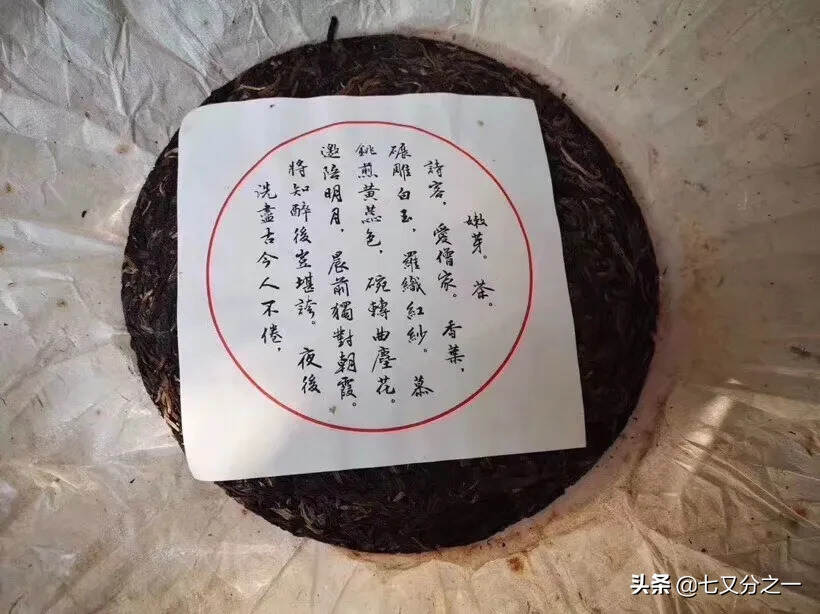 嫩芽。茶。
詩客,愛僧家。香葉,
碾雕白玉,羅織紅紗。慕
銚煎黃蕊色,碗轉曲塵花。
邀陪明月,晨前獨對朝霞。
將知醉後豈堪誇。夜後
洗盡古今人不倦,
头条 @七又分之一